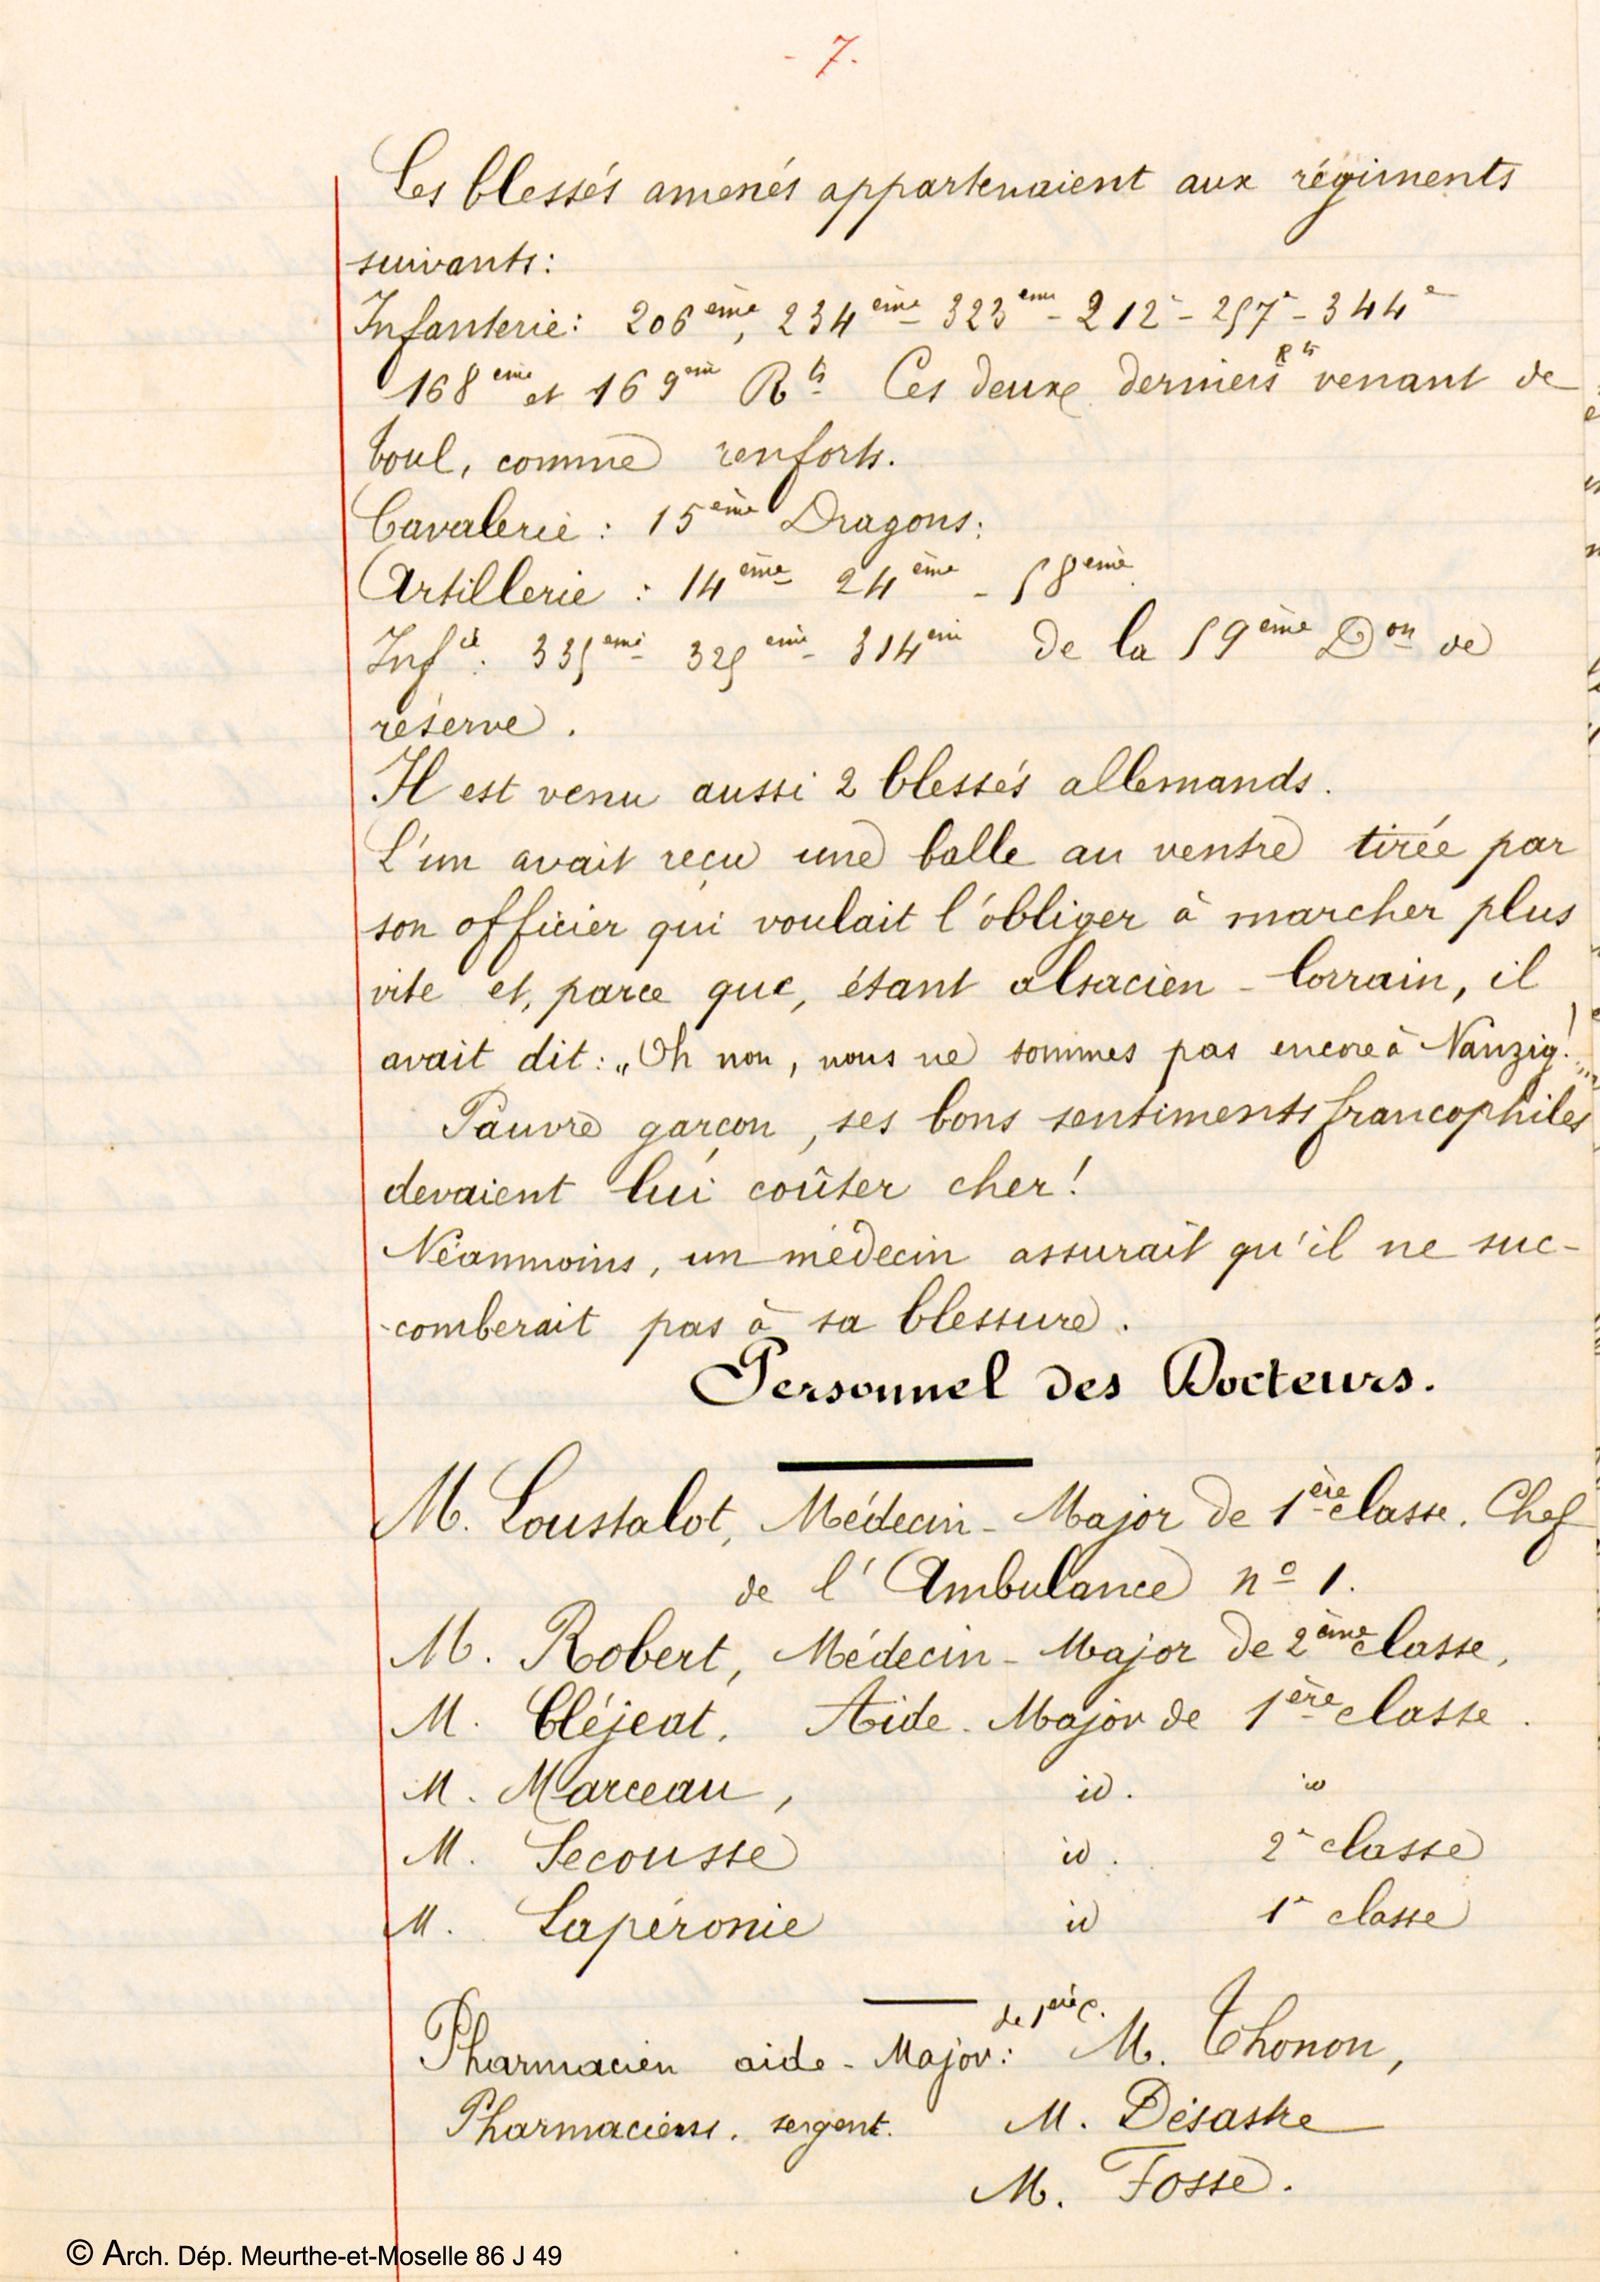 - 7.
Les blessés amenés appartenaient aux régiments
suivants:
Infanterie: 206ème, 234ème - 323ème - 212e - 257e - 344e
168ème et 169ème Rts Ces deux derniers Rts venant de
Toul, comme renforts.
Cavalerie : 15ème Dragons.
Artillerie : 14ème 24ème - 58ème
Infie : 335ème 325ème - 314ème de la 59ème Don de
réserve.
Il est venu aussi 2 blessés allemands.
L'un avait reçu une balle au ventre tirée par
son officier qui voulait l'obliger à marcher plus
vite et, parce que, étant alsacien - lorrain, il
avait dit: „Oh non, nous ne sommes pas encore à Nanzig! "
Pauvre garçon, ses bons sentiments francophiles
devaient lui coûter cher!
Néanmoins, un médecin assurait qu'il ne suc-
-comberait pas à sa blessure.
Personnel des Docteurs.
M. Loustalot, Médecin - Major de 1ère classe. Chef
de l'Ambulance no 1.
M. Robert, Médecin - Major de 2ème classe,
M. Cléjeat. Aide - Major de 1ère classe.
M. Marceau, id. id
M. Secousse id. 2e classe
M. Lapéronie id 1e classe
Pharmacien aide - Major: de 1ère c. M. Thonon,
Pharmaciens. sergent. M. Désastre
M. Fosse.
© Arch. Dép. Meurthe-et-Moselle 86 J 49